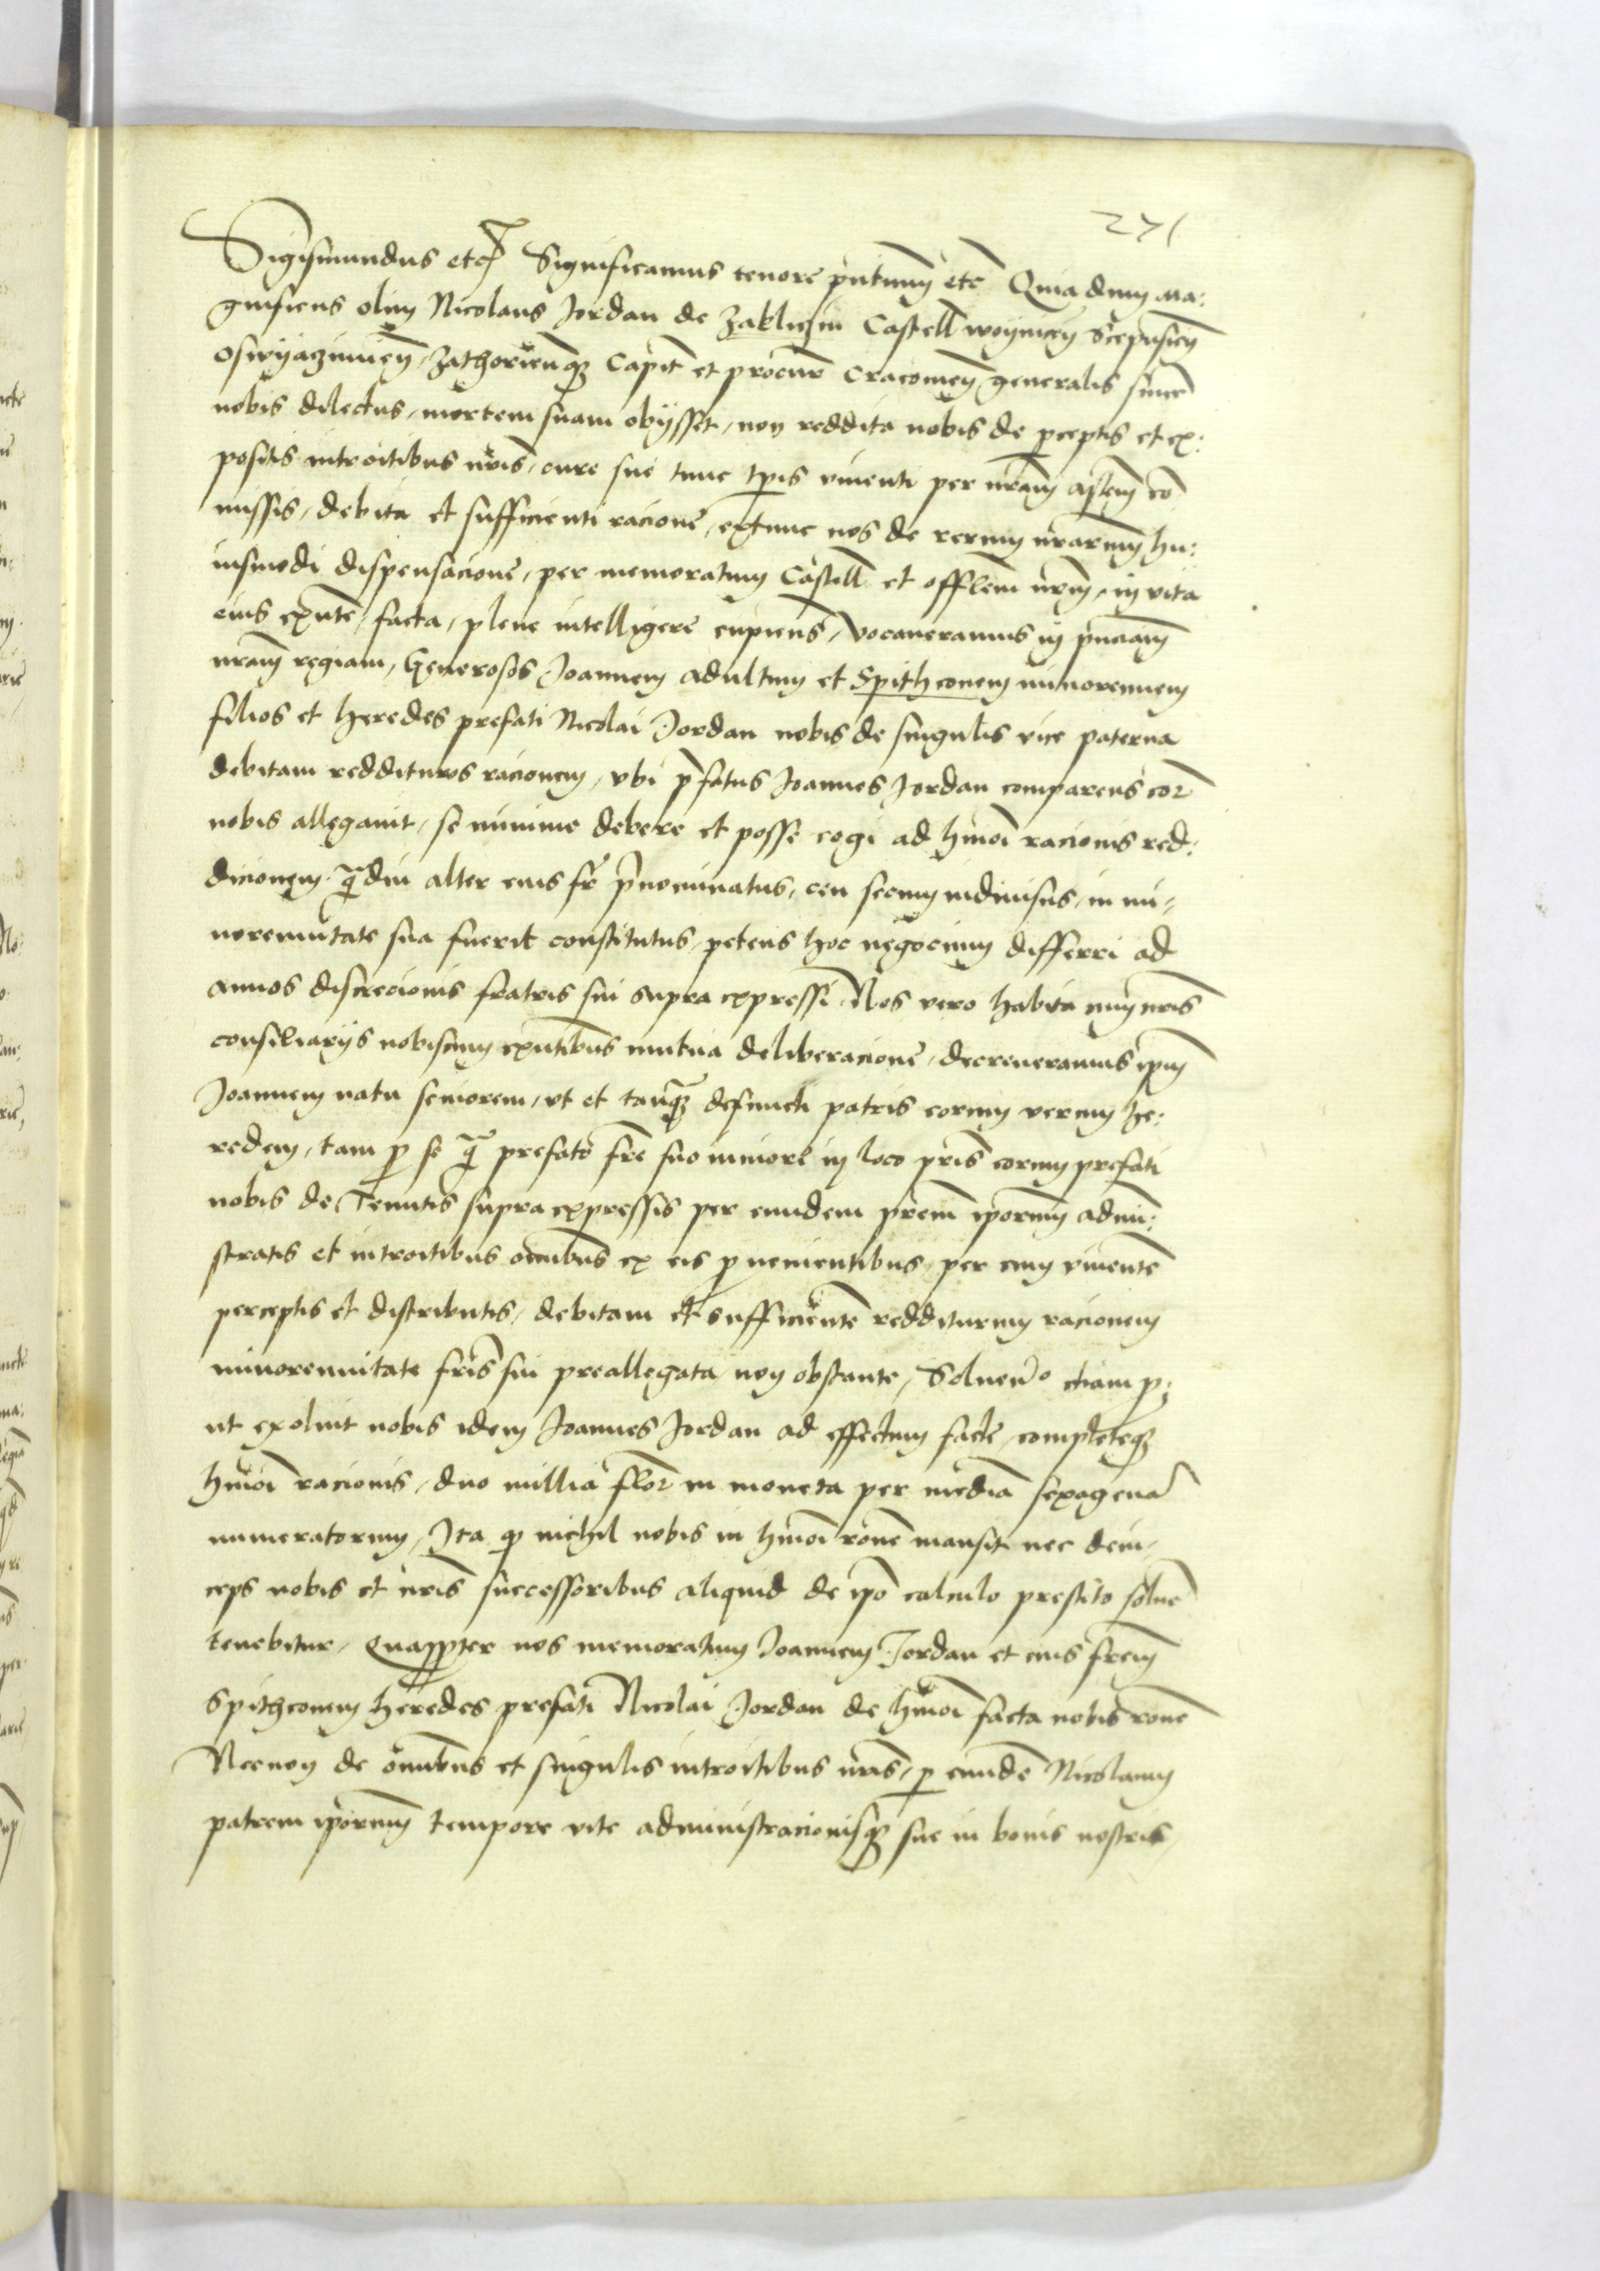 271
Sigismundus etc. Significamus tenore pñtium etc̃ Quia dum ma:
gnificus olim Nicolaus Jordan de Zakliczin Castell̃ woyniceñ Scepusieñ
Oswyaczimeñ, Zathorieñq̃ Capit̃ et procur̃ Cracovieñ generalis sincẽ
nobis dilectus, mortem suam obijsset, non reddita nobis de p̱ceptis et ex:
positis introitibus nr̃is, cure sue tunc tp̃is viventi per nr̃am mt̃em cõ
missis, debita et sufficienti racione, extunc nos de rerum nr̃arum hu:
iusmodi dispensacione, per memoratum Castell̃ et offlem̃ nr̃m, in vita
eius exñte, facta, plene intelligere cupieñs, vocaveramus in pñciam
nr̃am regiam, Generosos Joannem adultum et Spithconem minorennem
filios et heredes prefati Nicolai Jordan nobis de singulis vice paterna
debitam reddituros racionem, vbi p̃fatus Joannes Jordan comparens cor̃
nobis allegavit, se minime debere et posse cogi ad hmõi racionis red:
dicionem, q̃diu alter eius fr̃ p̃nominatus, ceu secum indivisus, in mi:
norennitate sua fuerit constitutus, petens hoc negocium differri ad
annos discrecionis fratris sui supra expressi. Nos vero habita cum nr̃is
consiliarijs nobiscum exñtibus mutua deliberacione, decreveramus ip̃m
Joannem natu seniorem, vt et tanq̃ defuncti patris eorum verum he:
redem, tam p̱ se q̃ prefato fr̃e suo iuniore in loco pr̃is eorum prefati
nobis de Tenutis supra expressis per eundem pr̃em ip̃orum admi:
stratis et introitibus oñibus ex eis p̱venientibus, per eum viventẽ
perceptis et distributis, debitam et sufficientẽ redditurum racionem
minorennitate fr̃is sui preallegata non obstante, Solven̄o etiam p̱:
ut exolvit nobis idem Joannes Jordan ad effectum facte, completeq̃
hmõi racionis, duo millia flor̃ in moneta per mediã sexagenã
numeratorum, Ita q̱ nichil nobis in hmõi rõne mansit nec dein,
ceps nobis et nr̃is successoribus aliquid de ip̃o calculo prestito solvẽ
tenebitur, Quap̱pter nos memoratum Joannem Jordan et eius fr̃em
Spithconem heredes prefati Nicolai Jordan de hmõi facta nobis rõne
Necnon de oñibus et singulis introitibus nr̃is, p̱ eundẽ Nicolaum
patrem ip̃orum tempore vite administracionisq̃ sue in bonis nostris,